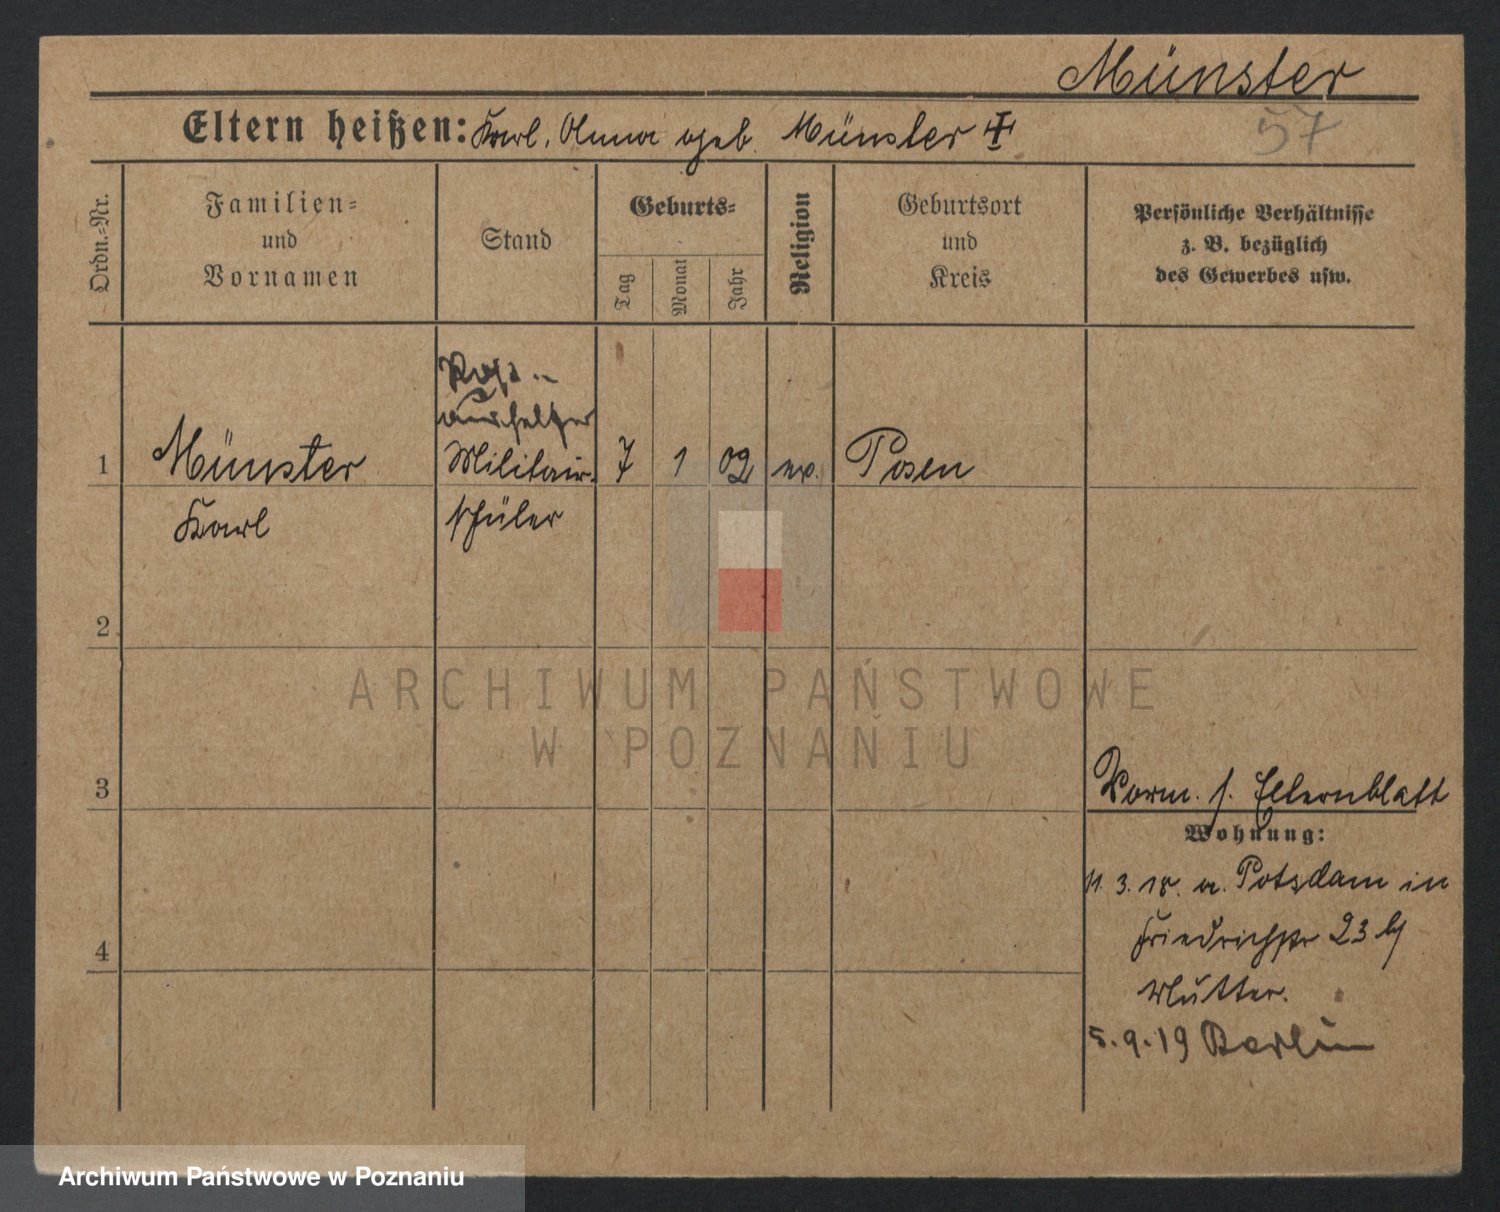 Münster
57
Eltern heißen: Karl, Anna geb. Münster
Ordn.-Nr.
Familien-
und
Vornamen
Stand
Geburts-
Tag
Monat
Jahr
Religion
Geburtsort
und
Kreis
Persönliche Verhältnisse
z. B. bezüglich
des Gewerbes usw.
Post-
aushelfer
1 Münster Militair- 7 1 02 ev. Posen
Karl schüler
2
ARCHIWUM PAŃSTWOWE
W POZNANIU
3
Vorm. s. Elternblatt
Wohnung:
11. 3. 18. a. Potsdam in
Friedrichstr 23 b/
Mutter.
4
5.9.19 Berlin
Archiwum Państwowe w Poznaniu